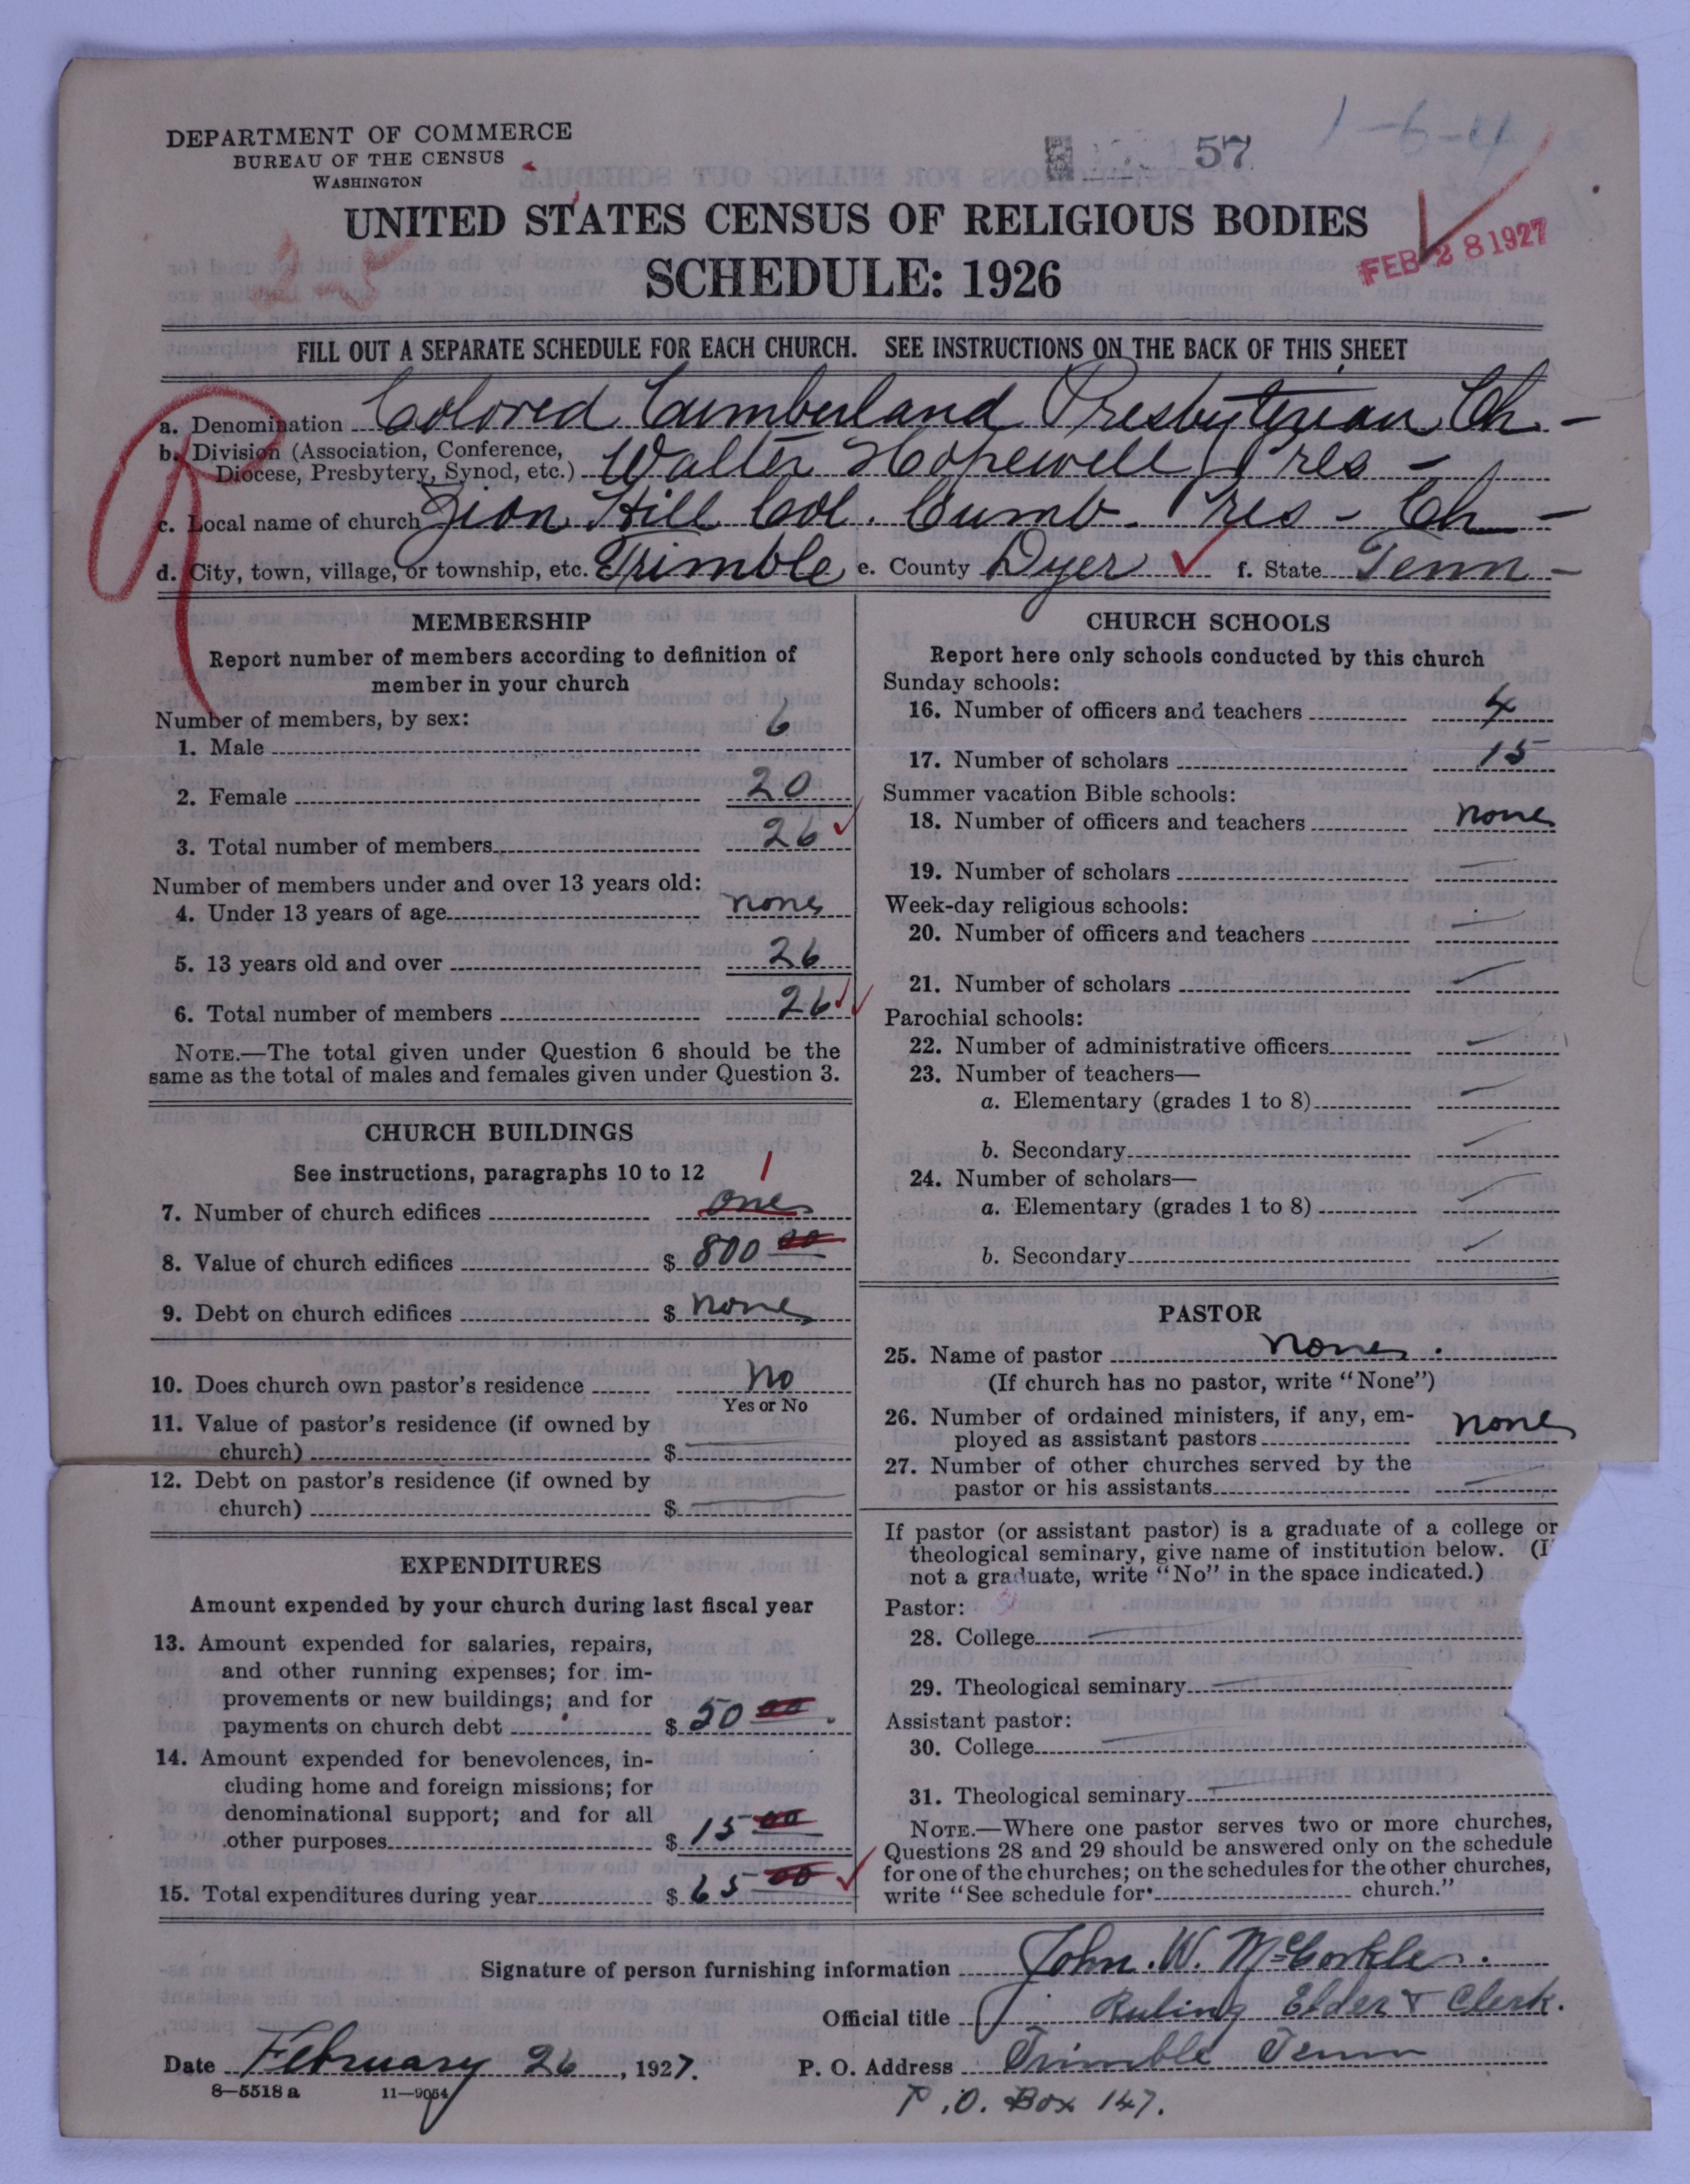 DEPARTMENT OF COMMERCE
BUREAU OF THE CENSUS
WASHINGTON
57
1-6-4
UNITED STATES CENSUS OF RELIGIOUS BODIES
SCHEDULE: 1926
FEB 28 1927
FILL OUT A SEPARATE SCHEDULE FOR EACH CHURCH. SEE INSTRUCTIONS ON THE BACK OF THIS SHEET
a. Denomination Colored Cumberland Presbyterian Ch -
b. Division (Association, Conference,
Diocese, Presbytery, Synod, etc.) Walter Hopewell Pres -
c. Local name of church Zion Hill Col. Cumb. Pres - Ch -
d. City, town, village, or township, etc. Trimble e. County Dyer f. State Tenn -
MEMBERSHIP
Report number of members according to definition of
member in your church
Number of members, by sex:
1. Male 6
2. Female 20
3. Total number of members 26
Number of members under and over 13 years old:
4. Under 13 years of age none
5. 13 years old and over 26
6. Total number of members 26
NOTE.—The total given under Question 6 should be the
same as the total of males and females given under Question 3.
CHURCH BUILDINGS
See instructions, paragraphs 10 to 12 1
7. Number of church edifices one
8. Value of church edifices $ 800 00
9. Debt on church edifices $ none
10. Does church own pastor's residence No
Yes or No
11. Value of pastor's residence (if owned by
church) $
12. Debt on pastor's residence (if owned by
church) $
EXPENDITURES
Amount expended by your church during last fiscal year
13. Amount expended for salaries, repairs,
and other running expenses; for im-
provements or new buildings; and for
payments on church debt $ 50 00
14. Amount expended for benevolences, in-
cluding home and foreign missions; for
denominational support; and for all
other purposes $ 15 00
15. Total expenditures during year $ 65 00
CHURCH SCHOOLS
Report here only schools conducted by this church
Sunday schools:
16. Number of officers and teachers 4
17. Number of scholars 15
Summer vacation Bible schools:
18. Number of officers and teachers none
19. Number of scholars
Week-day religious schools:
20. Number of officers and teachers
21. Number of scholars
Parochial schools:
22. Number of administrative officers
23. Number of teachers—
a. Elementary (grades 1 to 8)
b. Secondary
24. Number of scholars—
a. Elementary (grades 1 to 8)
b. Secondary
PASTOR
25. Name of pastor none.
(If church has no pastor, write "None")
26. Number of ordained ministers, if any, em-
ployed as assistant pastors none
27. Number of other churches served by the
pastor or his assistants
If pastor (or assistant pastor) is a graduate of a college or
theological seminary, give name of institution below. (I
not a graduate, write "No" in the space indicated.)
Pastor:
28. College
29. Theological seminary
Assistant pastor:
30. College
31. Theological seminary
NOTE.—Where one pastor serves two or more churches,
Questions 28 and 29 should be answered only on the schedule
for one of the churches; on the schedules for the other churches,
write "See schedule for church."
Signature of person furnishing information John. W. McCorkle.
Official title Ruling Elder & Clerk.
Date February 26, 1927. P. O. Address Trimble Tenn
8-5518 a 11-9054
P.O. Box 147.